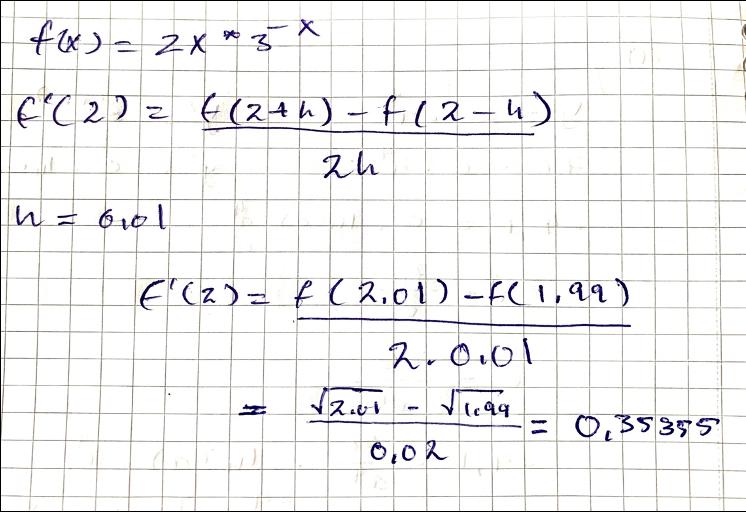 f(x) = 2x * 3^-x
f'(2) = (f(2+h) - f(2-h)) / 2h
h = 0,01
f'(2) = (f(2.01) - f(1,99)) / 2.0.01
= (√2.01 - √1.99) / 0,02 = 0,35355